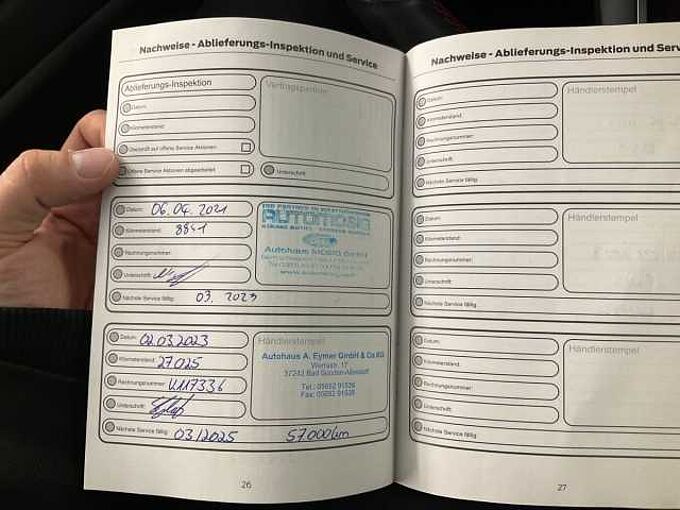 Nachweise - Ablieferungs-Inspektion und Service
Ablieferungs-Inspektion
Datum:
Kilometerstand:
Überprüft auf offene Service Aktionen
Offene Service Aktionen abgearbeitet
Vertragspartner
Unterschrift:
Datum: 06.04.2021
Kilometerstand: 8841
Rechnungsnummer:
Unterschrift:
Nächste Service fällig: 03. 2023
IHR PARTNER IN
AUTOMOSIG
Autohaus MOSIG GmbH
Datum: 02.03.2023
Kilometerstand: 27025
Rechnungsnummer: U117336
Unterschrift:
Nächste Service fällig: 03/2025 57.000km
Händlerstempel
Autohaus A. Eymer GmbH & Co.KG
Werrastr. 17
37242 Bad Sooden-Allendorf
Tel.: 05652 91526
Fax: 05652 91528
26
Nachweise - Ablieferungs-Inspektion und Serv
Datum:
Kilometerstand:
Rechnungsnummer:
Unterschrift:
Nächste Service fällig:
Händlerstempel
Datum:
Kilometerstand:
Rechnungsnummer:
Unterschrift:
Nächste Service fällig:
Händlerstempel
Datum:
Kilometerstand:
Rechnungsnummer:
Unterschrift:
Nächste Service fällig:
Händlerstempel
27